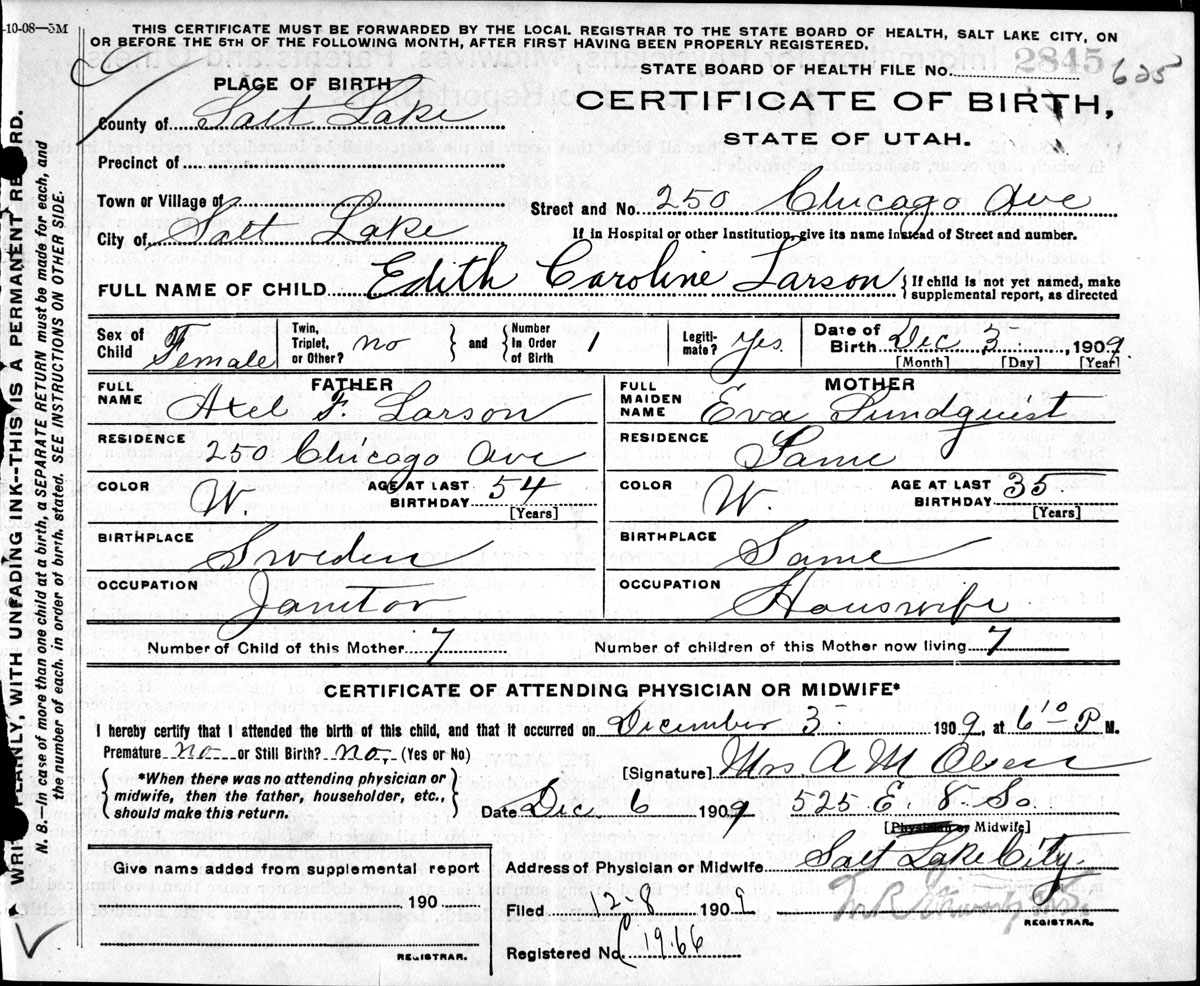 -10-08—5M
THIS CERTIFICATE MUST BE FORWARDED BY THE LOCAL REGISTRAR TO THE STATE BOARD OF HEALTH, SALT LAKE CITY, ON
OR BEFORE THE 5TH OF THE FOLLOWING MONTH, AFTER FIRST HAVING BEEN PROPERLY REGISTERED.
PLACE OF BIRTH
STATE BOARD OF HEALTH FILE No. 2845 625
CERTIFICATE OF BIRTH,
STATE OF UTAH.
County of Salt Lake
Precinct of
Town or Village of
Street and No. 250 Chicago Ave
City of Salt Lake
If in Hospital or other Institution, give its name instead of Street and number.
FULL NAME OF CHILD Edith Caroline Larson { If child is not yet named, make
supplemental report, as directed
Sex of Child Female
Twin, Triplet, or Other? no } and { Number In Order of Birth 1
Legiti-mate? Yes
Date of Birth Dec 3, 1909.
[Month] [Day] [Year]
FATHER
FULL NAME Axel F. Larson
MOTHER
FULL MAIDEN NAME Eva Sundquist
RESIDENCE 250 Chicago Ave
RESIDENCE Same
COLOR W. AGE AT LAST BIRTHDAY 54 [Years]
COLOR W. AGE AT LAST BIRTHDAY 35 [Years]
BIRTHPLACE Sweden
BIRTHPLACE Same
OCCUPATION Janitor
OCCUPATION Houswife
Number of Child of this Mother 7
Number of children of this Mother now living 7
CERTIFICATE OF ATTENDING PHYSICIAN OR MIDWIFE*
I hereby certify that I attended the birth of this child, and that it occurred on December 3 1909, at 6 10 P M.
Premature no or Still Birth? no, (Yes or No)
{ *When there was no attending physician or
midwife, then the father, householder, etc.,
should make this return. }
[Signature] Mrs A M Olsen
Date Dec. 6 1909 525 E. 8 So.
[Physician or Midwife]
Give name added from supplemental report
190
REGISTRAR.
Address of Physician or Midwife Salt Lake City.
Filed 12-8 1909
REGISTRAR.
Registered No. 1966
WRITE PLAINLY, WITH UNFADING INK--THIS IS A PERMAMENT RECORD.
N. B.—In case of more than one child at a birth, a SEPARATE RETURN must be made for each, and
the number of each. in order of birth. stated. SEE INSTRUCTIONS ON OTHER SIDE.